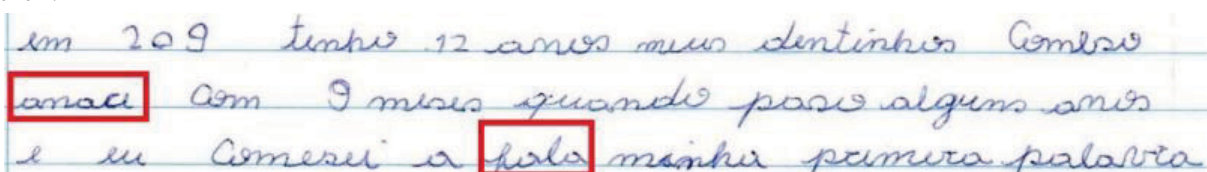 em 209 tenho 12 anos meus dentinhos Comeso
anace Com 9 meses quando paso alguns anos
e eu Comesei a fala minha primera palavra